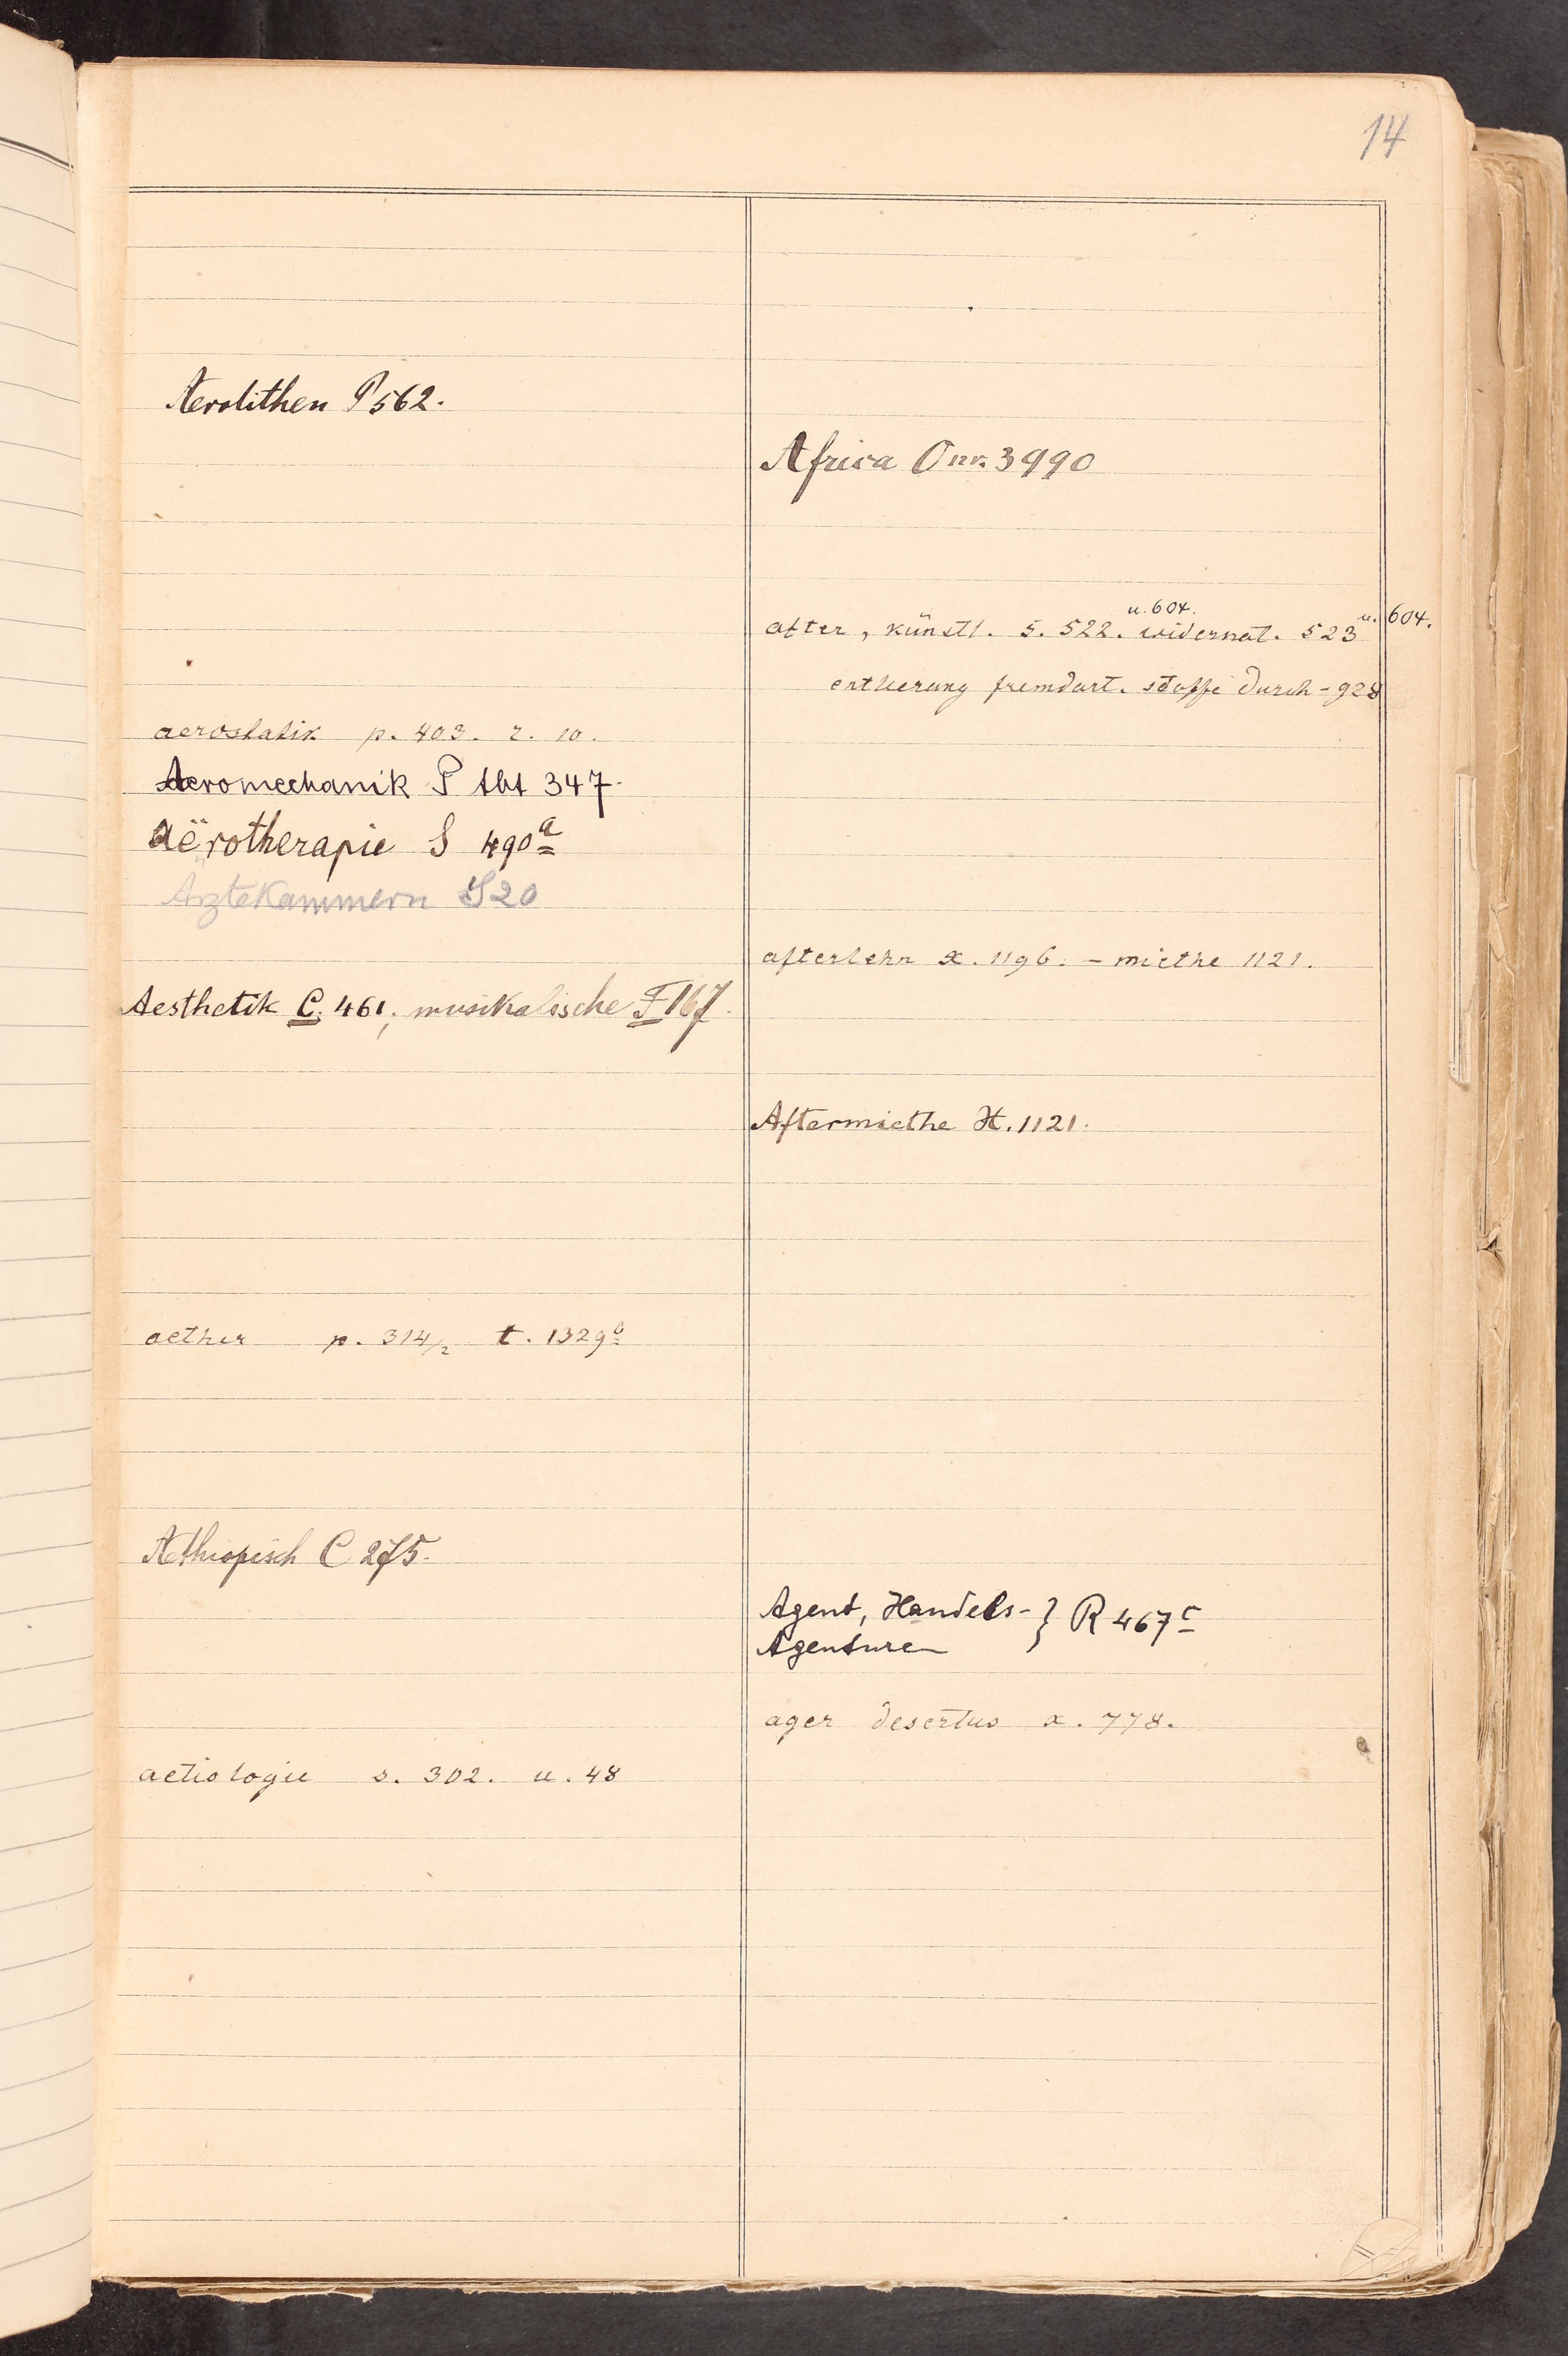 14
Aerolithen P 562.
aerostatik p. 403. r. 10.
Aeromechanik P 347.
aërotherapie S 490a
Arztekammern S 20
Aesthetik C. 461, musikalische F 167.
aether p. 314/2 t. 1329b
Aethiopisch C 275.
aetiologie s. 302. u. 48
Africa O nr. 3990
u. 604.
after, künstl. s. 522. widernat. 523 u. 604.
entleerung fremdart. stoffe durch - 928
afterlehn x. 1196. - miethe 1121.
Aftermiethe H. 1121.
Agent, Handels- } R 467c
Agenturen
ager desertus x. 778.